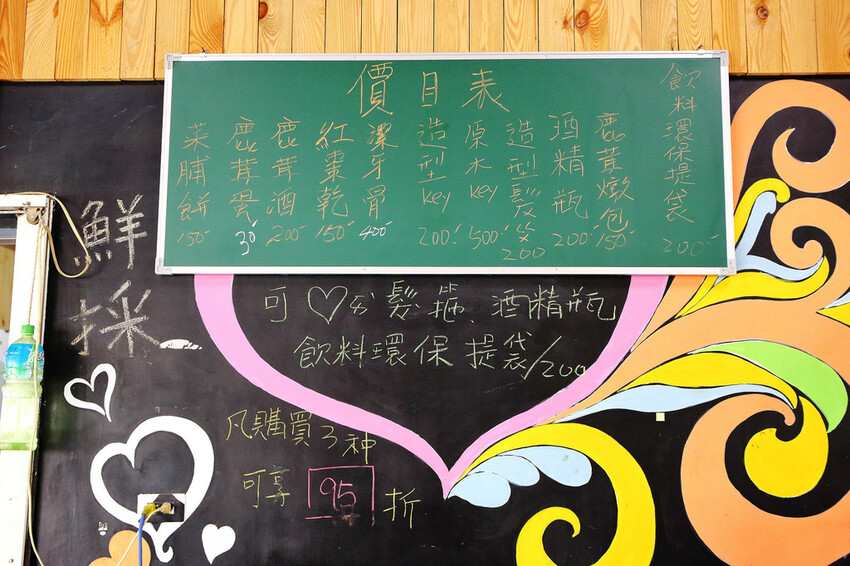 價目表
飲料環保提袋 200
鹿茸燉包 150
酒精瓶 200
造型髮 200
原木key 500
造型key 200
潔牙骨 400
紅棗乾 150
鹿茸酒 200
鹿茸 30
菜脯餅 150
鮮採
可♡ 髮箍、酒精瓶
飲料環保提袋/200
凡購買3种
可享 95 折